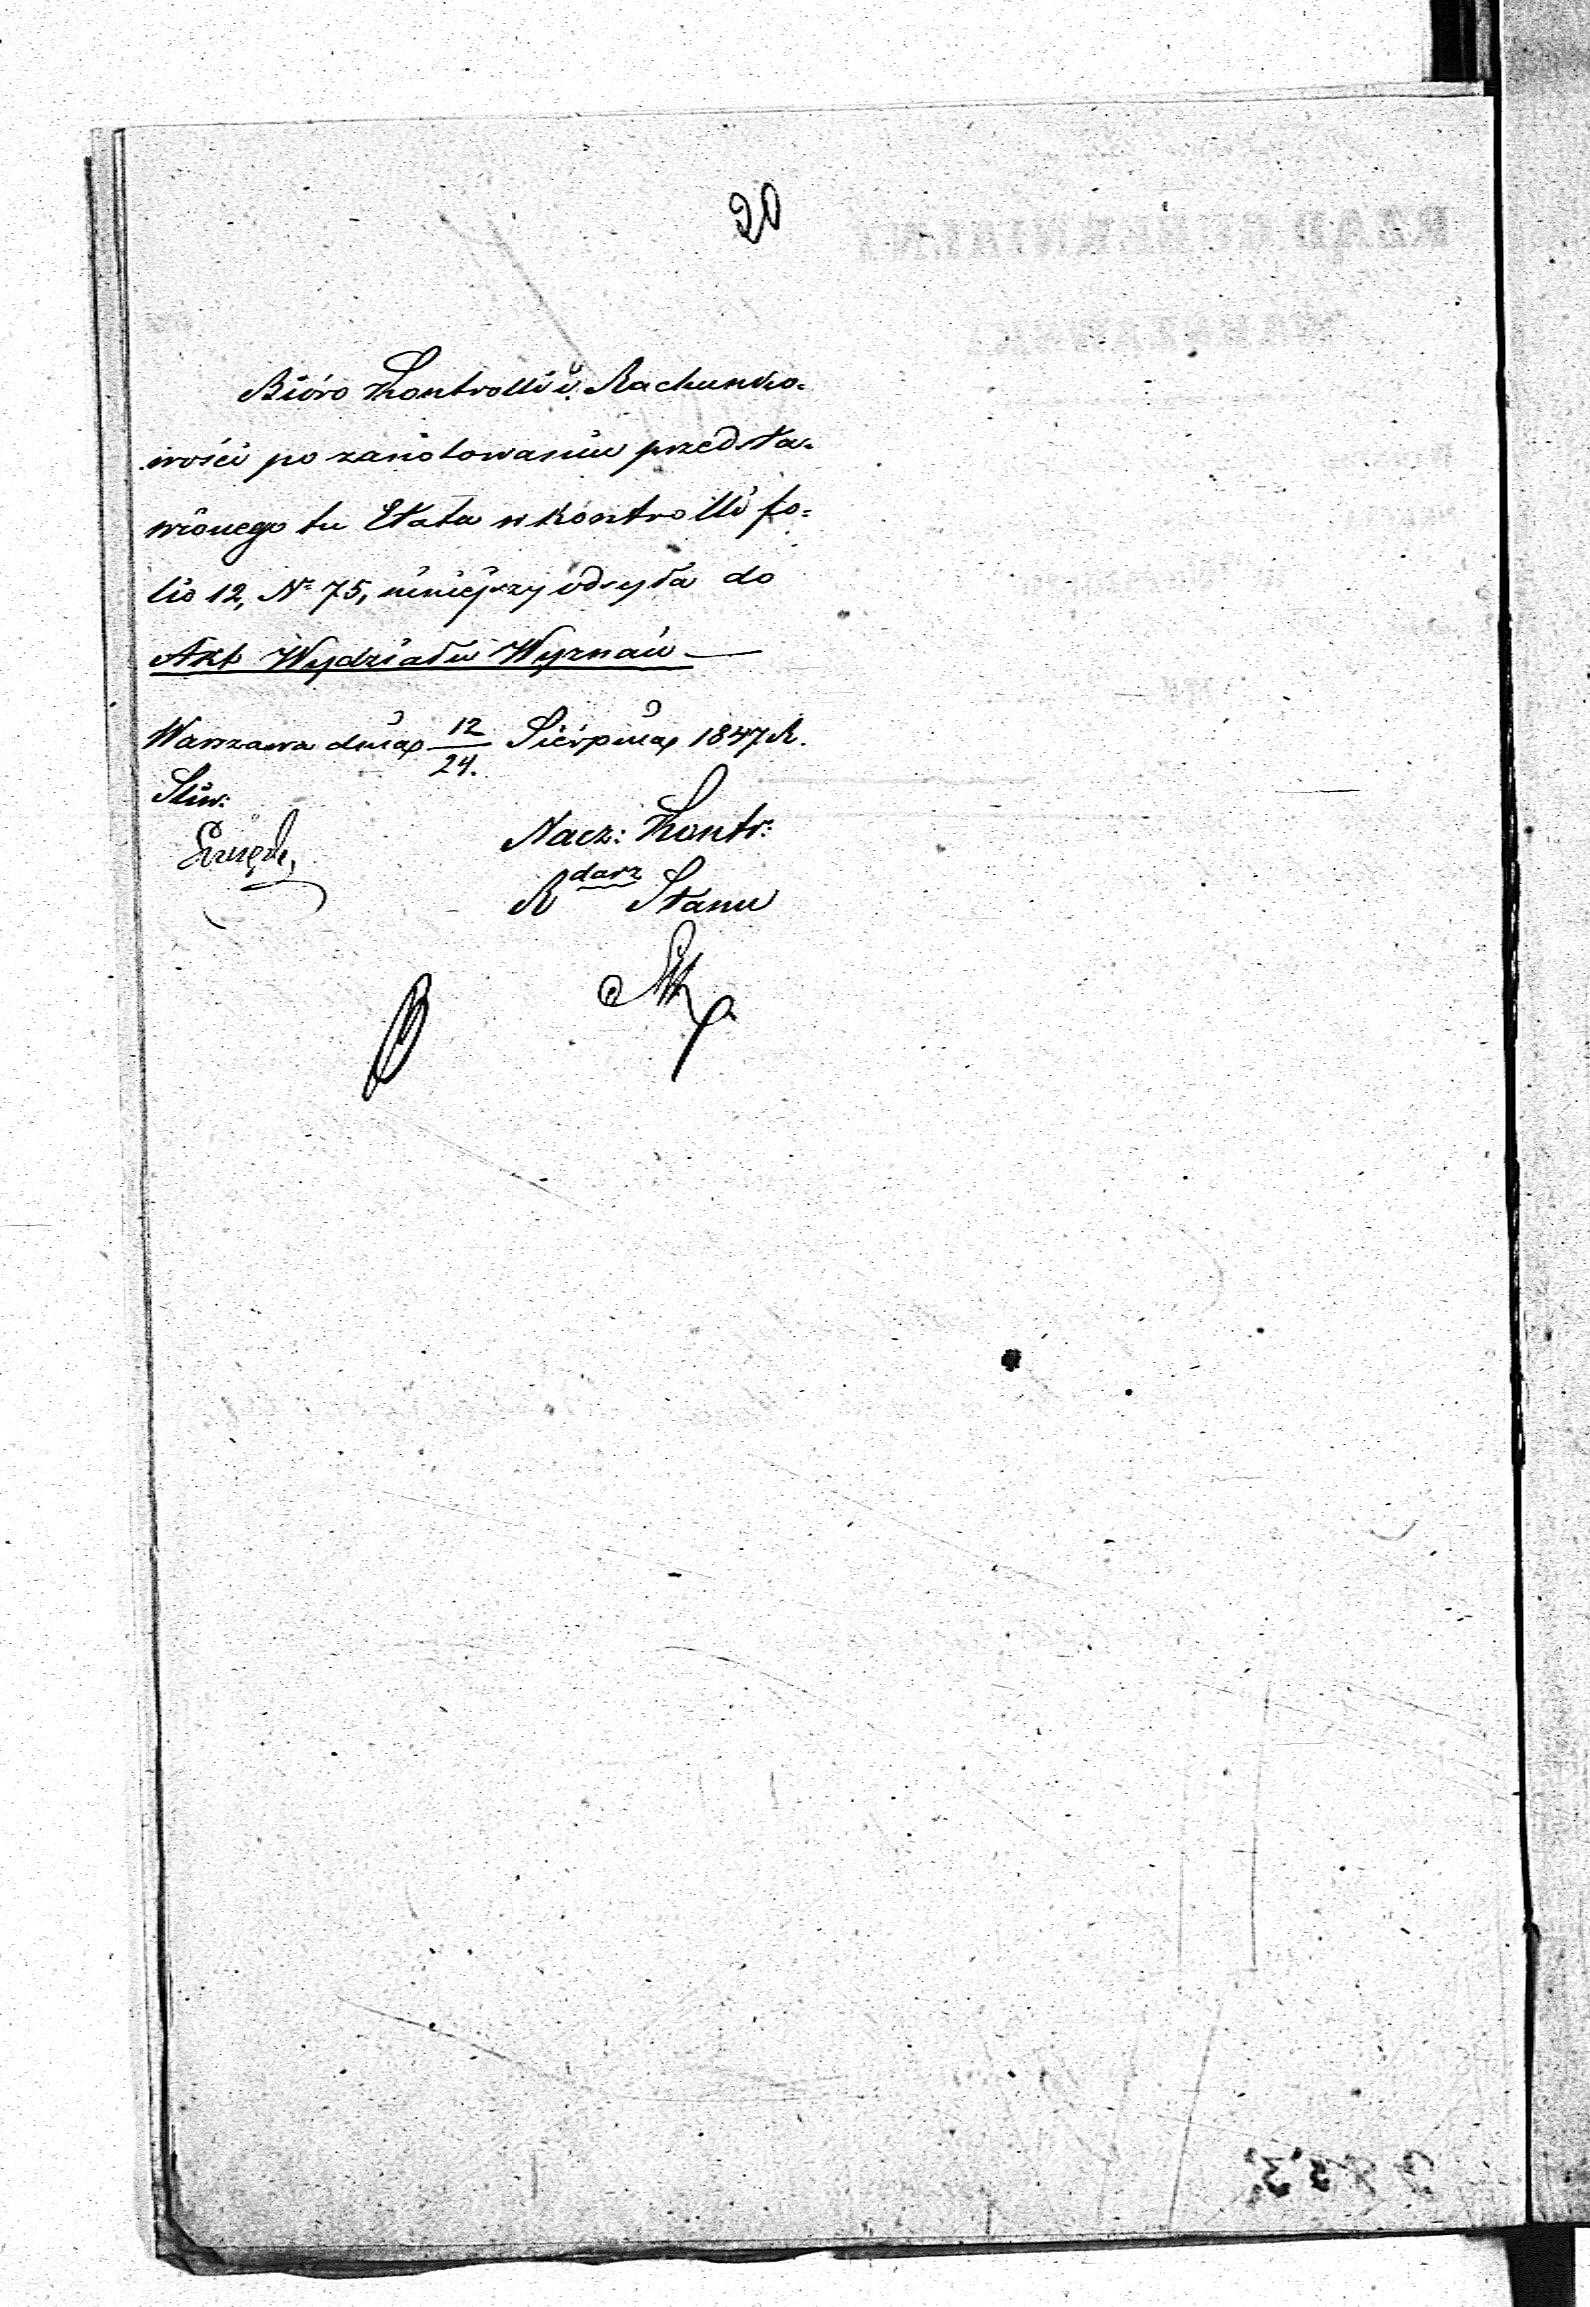 20
Bióro Kontrolli i Rachunko=
wości po zanotowaniu przedsta=
wionego tu Etatu w Kontrolli fo=
lio 12, Nº 75, niniejszy odsyła do
Akt Wydziału Wyznań —
Warszawa dnia 12/24. Sierpnia 1847 R.
Nacz: Kontr:
Rdarz Stanu